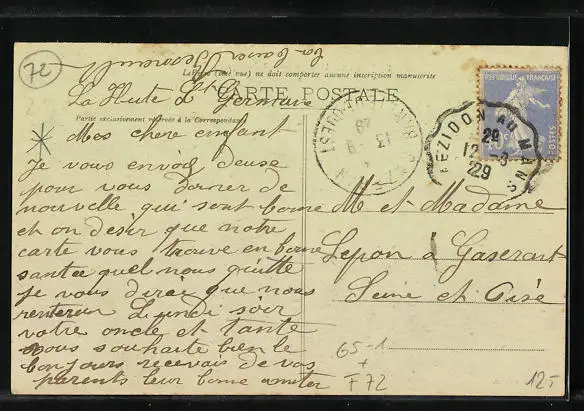 72
La Haute St Germain
(tout vu) ne doit comporter aucune inscription manuscrite
CARTE POSTALE
Partie exclusivement réservée à la Correspondance
REPUBLIQUE FRANÇAISE
MEZIDON AU MANS
29
12-3
229
13
29
Mes chere enfant
Je vous envoie deuse
pour vous donner de
nouvelle qui sont bonne
et on désir que notre
carte vous trouve en bonne
santee quel nous quitte
Je vous dirai que nous
renteron Lundi soir
votre oncle et tante
vous souhaite bien le
bonjours recevais de vos
parents leur bonne amiter
M et Madame
Lepon à Gaserant
Seine et Oise
GS-1
+
F72
12-